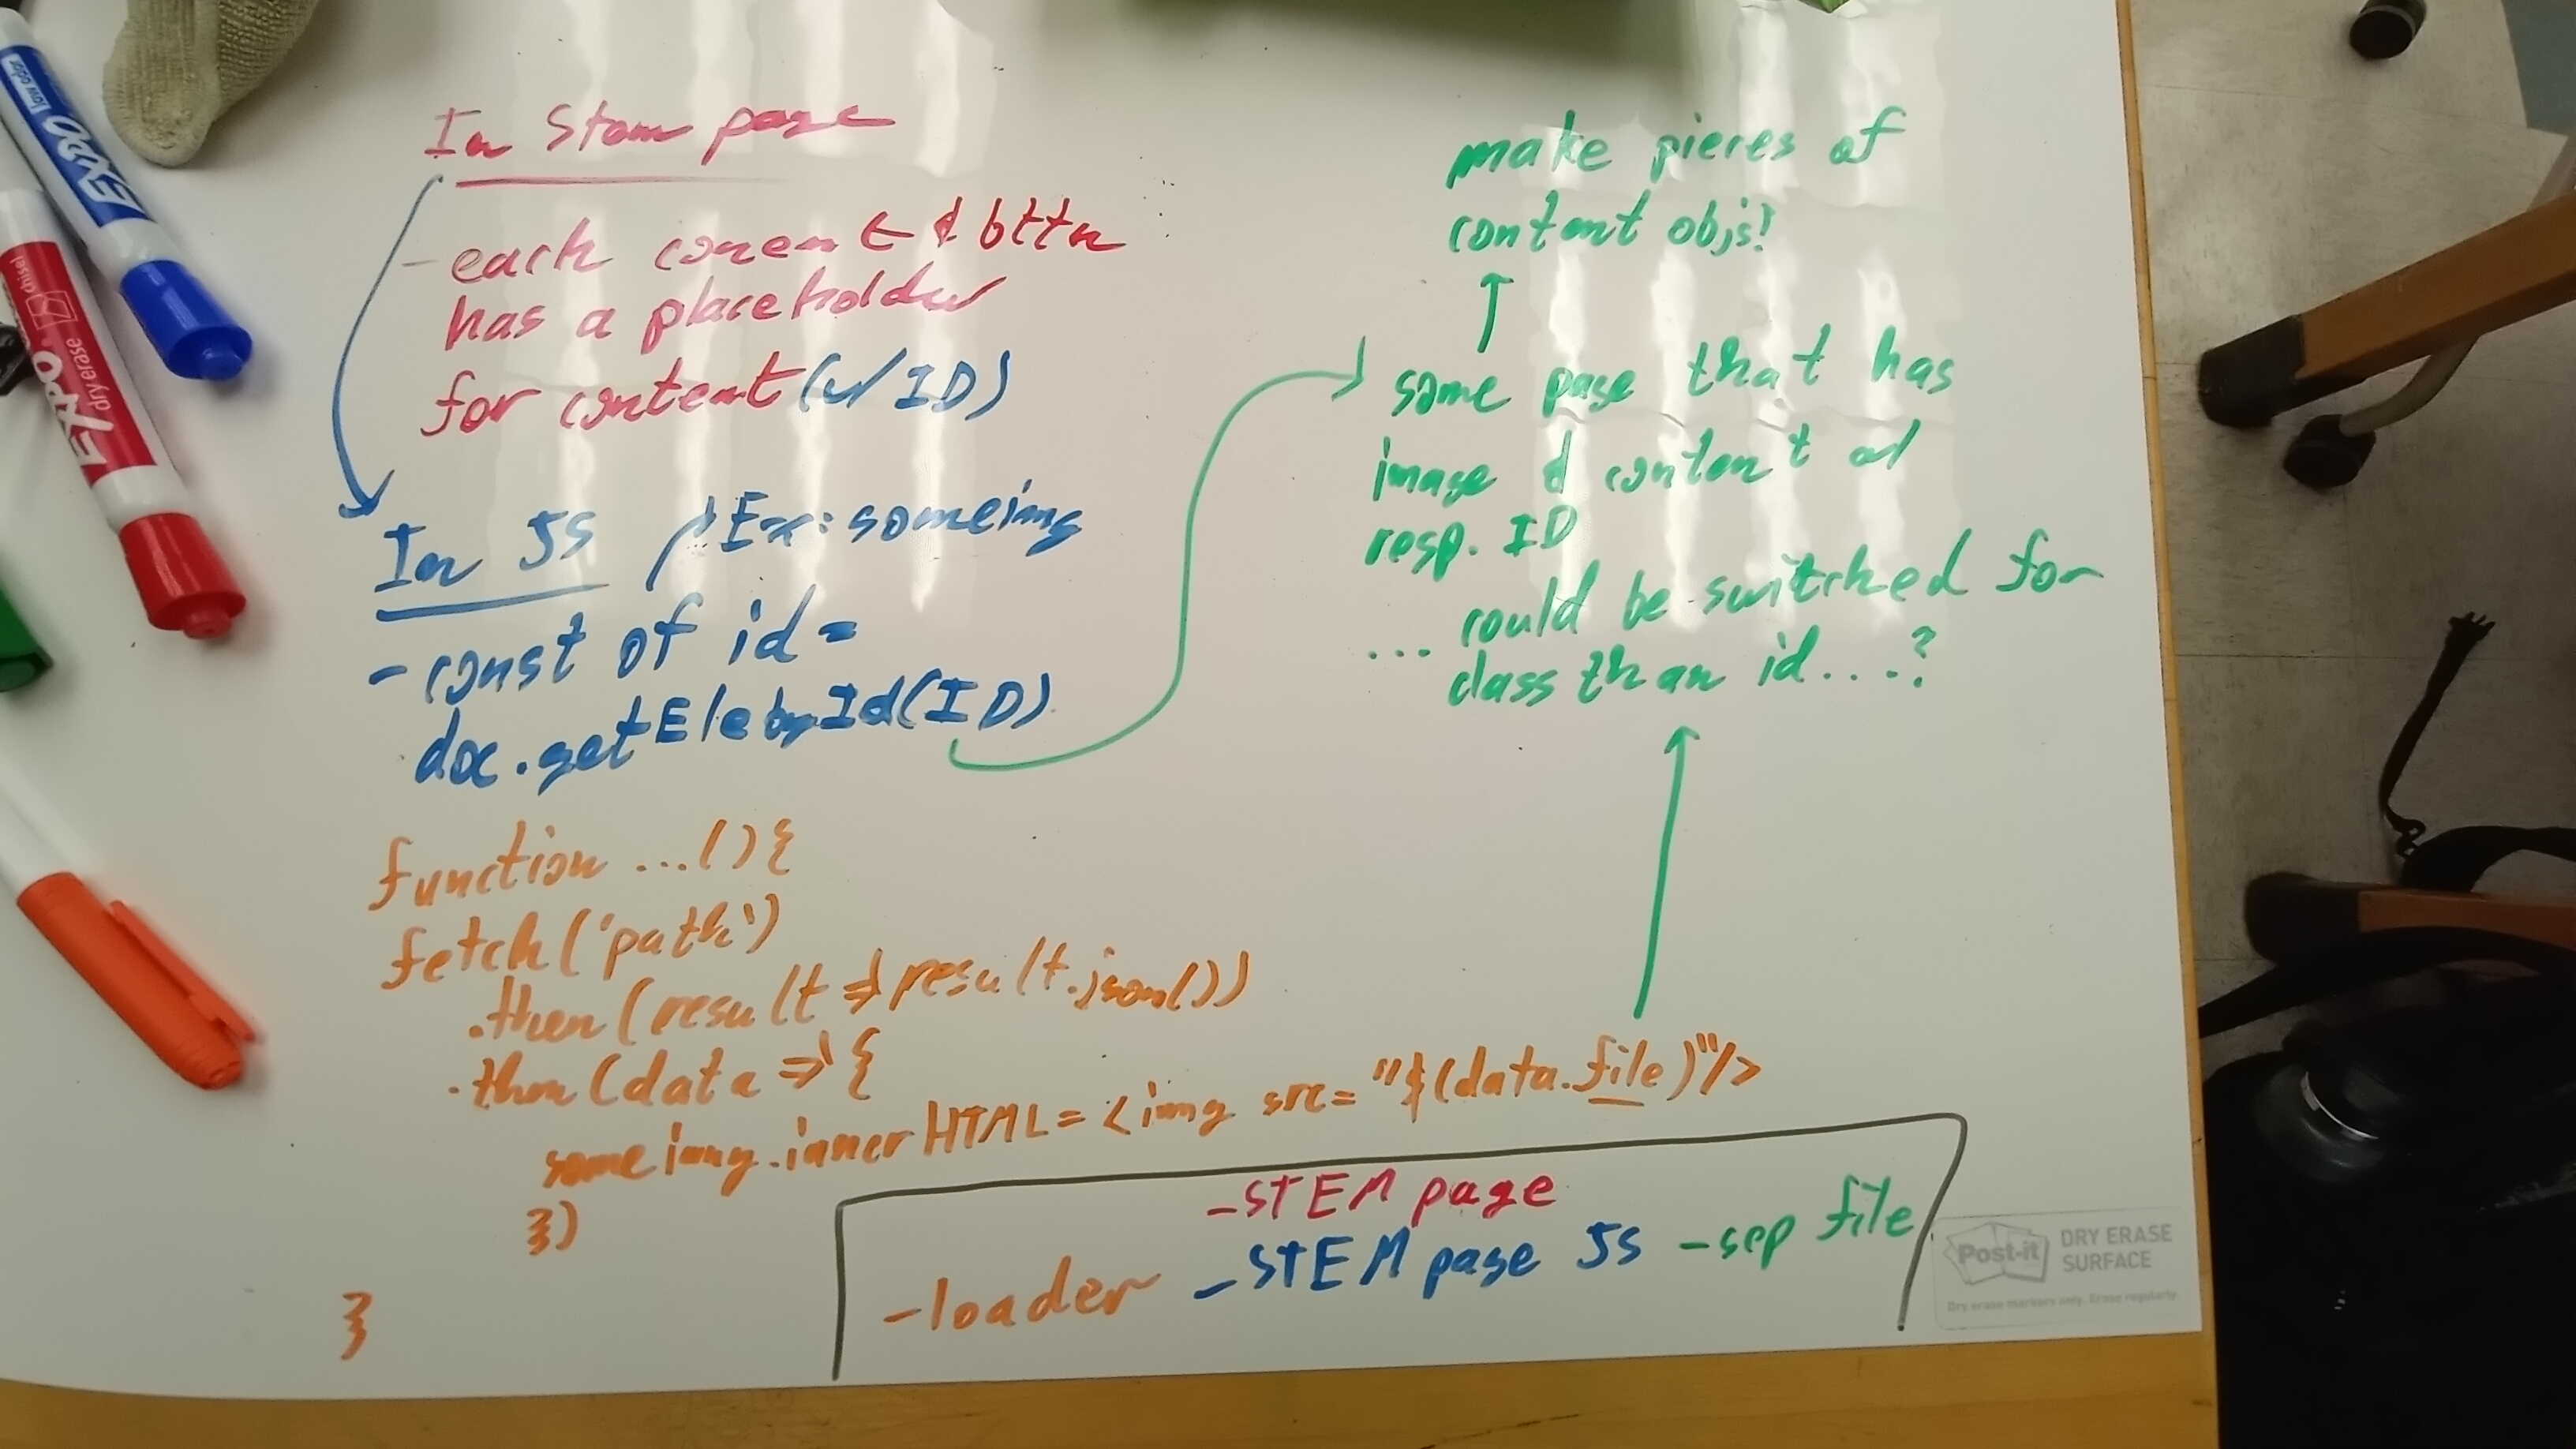 In Stem page
- each conent & bttn
has a placeholder
for content (w/ ID)
In JS
Ex: someimg
- const of id =
doc.getElebyId(ID)
function ...(){
fetch('path')
.then(result => result.json())
.then(data => {
someimg.innerHTML = <img src= "$(data.file)"/>
})
}
make pieces of
content objs!
some page that has
image & content w/
resp. ID
... could be switched for
class than id....?
- STEM page
- loader - STEM page JS - sep file
Post-it DRY ERASE
SURFACE
Dry erase markers only. Erase regularly.
EXPO
low odor
EXPO
dry erase
chisel